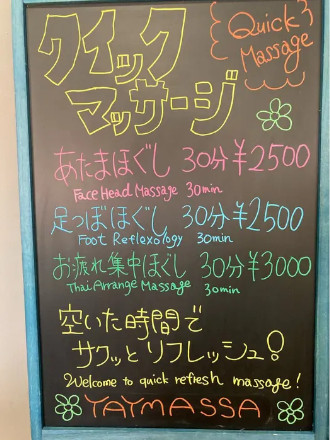 クイック
マッサージ
Quick
Massage
あたまほぐし 30分¥2500
Face Head Massage 30min
足つぼほぐし 30分¥2500
Foot Reflexology 30min
お疲れ集中ほぐし 30分¥3000
Thai Arrange Massage 30min
空いた時間で
サクッとリフレッシュ!
Welcome to quick refresh massage!
YAYMASSA